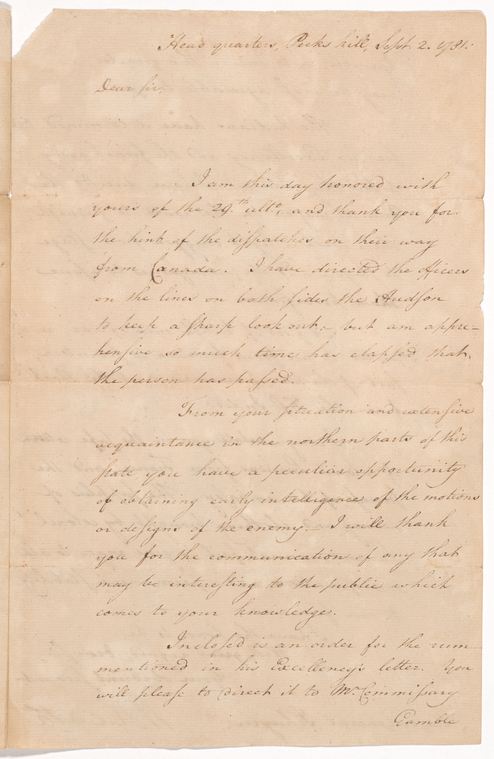 Head quarters, Peeks kill, Sept. 2. 1781.
Dear Sir,
I am this day honored with
yours of the 29th. ulto. and thank you for
the hint of the dispatches on their way
from Canada. I have directed the officers
on the lines on both sides the Hudson
to keep a sharp look out, but am appre-
hensive so much time has elapsed that
the person has passed.
From your situation and extensive
acquaintance in the northern parts of this
state you have a peculiar opportunity
of obtaining early intelligence of the motions
or designs of the enemy. I will thank
you for the communication of any that
may be interesting to the public which
comes to your knowledge.
Inclosed is an order for the rum
mentioned in his Excellency's letter. You
will please to direct it to Mr. Commissary
Gamble